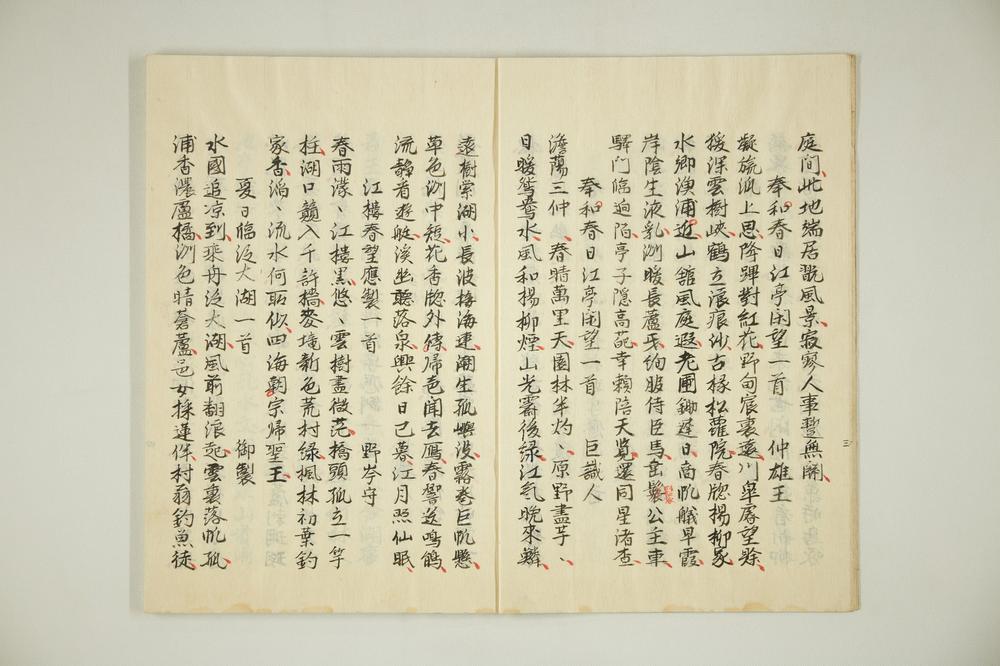 庭間此地端居翫風景寂寥人事蹔無關
奉和春日江亭閑望一首 仲雄王
凝旒洲上思降蹕對紅花野甸宸襄遠川皐辱望賒
猨深雲樹峽鶴立浪痕沙古椽松蘿院春牕楊柳家
水郷漁浦近山舘風庭遐老圃鋤遲日商帆艤早霞
岸陰生液乳洲暖長蘆芽絢服侍臣馬鬟公主車
驛門臨迥陌亭子隱高葩幸賴陪天覽還同星渚查
奉和春日江亭閑望一首 巨識人
澹蕩三仲春晴萬里天園林半灼、原野盡芊、
日暖鴛鴦水風和楊柳煙山光霽後緑江氣晚來鱗
遠樹棠湖小長波接海連潮生孤嶼沒霧卷巨帆懸
草色洲中短花香牕外傳歸邕聞去鴈春響送鳴鵑
流靜看遊艇溪幽聽落泉興餘日已暮江月照仙眠
江樓春望應製一首 野岑守
春雨濛、江樓黒悠、雲樹盡微茫橋頭孤立一竿
柱湖口籟入千許檣麥壠新色荒村緑楓林初葉釣
家香滔、流水何所似四海朝宗歸聖王
夏日臨泛大湖一首 御製
水國追凉到乘舟泛大湖風前翻浪起雲裏落帆孤
浦香濃盧橘洲色晴蒼蘆邑女採蓮伴村翁釣魚徒
三